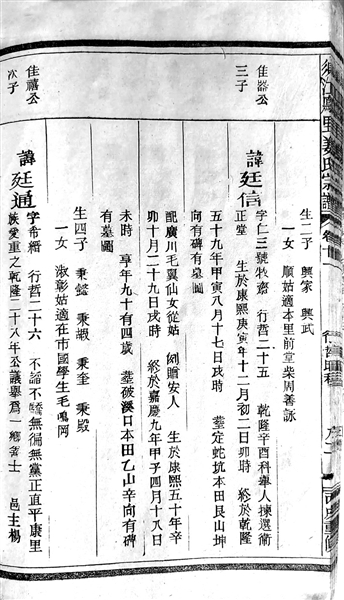 生二子 興家 興武
一女 順姑適本里前堂柴周善詠
佳器公
三子
諱廷信
字仁三號牧齋 行哲二十五 乾隆辛酉科舉人揀選衛
正堂 生於康熙庚寅年十二月初二日卯時 終於乾隆
五十九年甲寅八月十七日戌時 墓定蛇坑本田艮山坤
向有碑有墓圖
配廣川毛翼仙女從姑 勑贈安人 生於康熙五十年辛
卯十月二十九日戌時 終於嘉慶九年甲子四月十八日
未時 享年九十有四歲 墓破溪口本田乙山辛向有碑
有墓圖
生四子 秉懿 秉嘏 秉奎 秉殿
一女 淑彰姑適在市國學生毛鳴岡
佳禧公
次子
諱廷通
字希縉 行哲二十六 不諂不驕無偏無黨正直平康里
族愛重之乾隆二十八年公議舉爲一鄉耆士 邑主楊